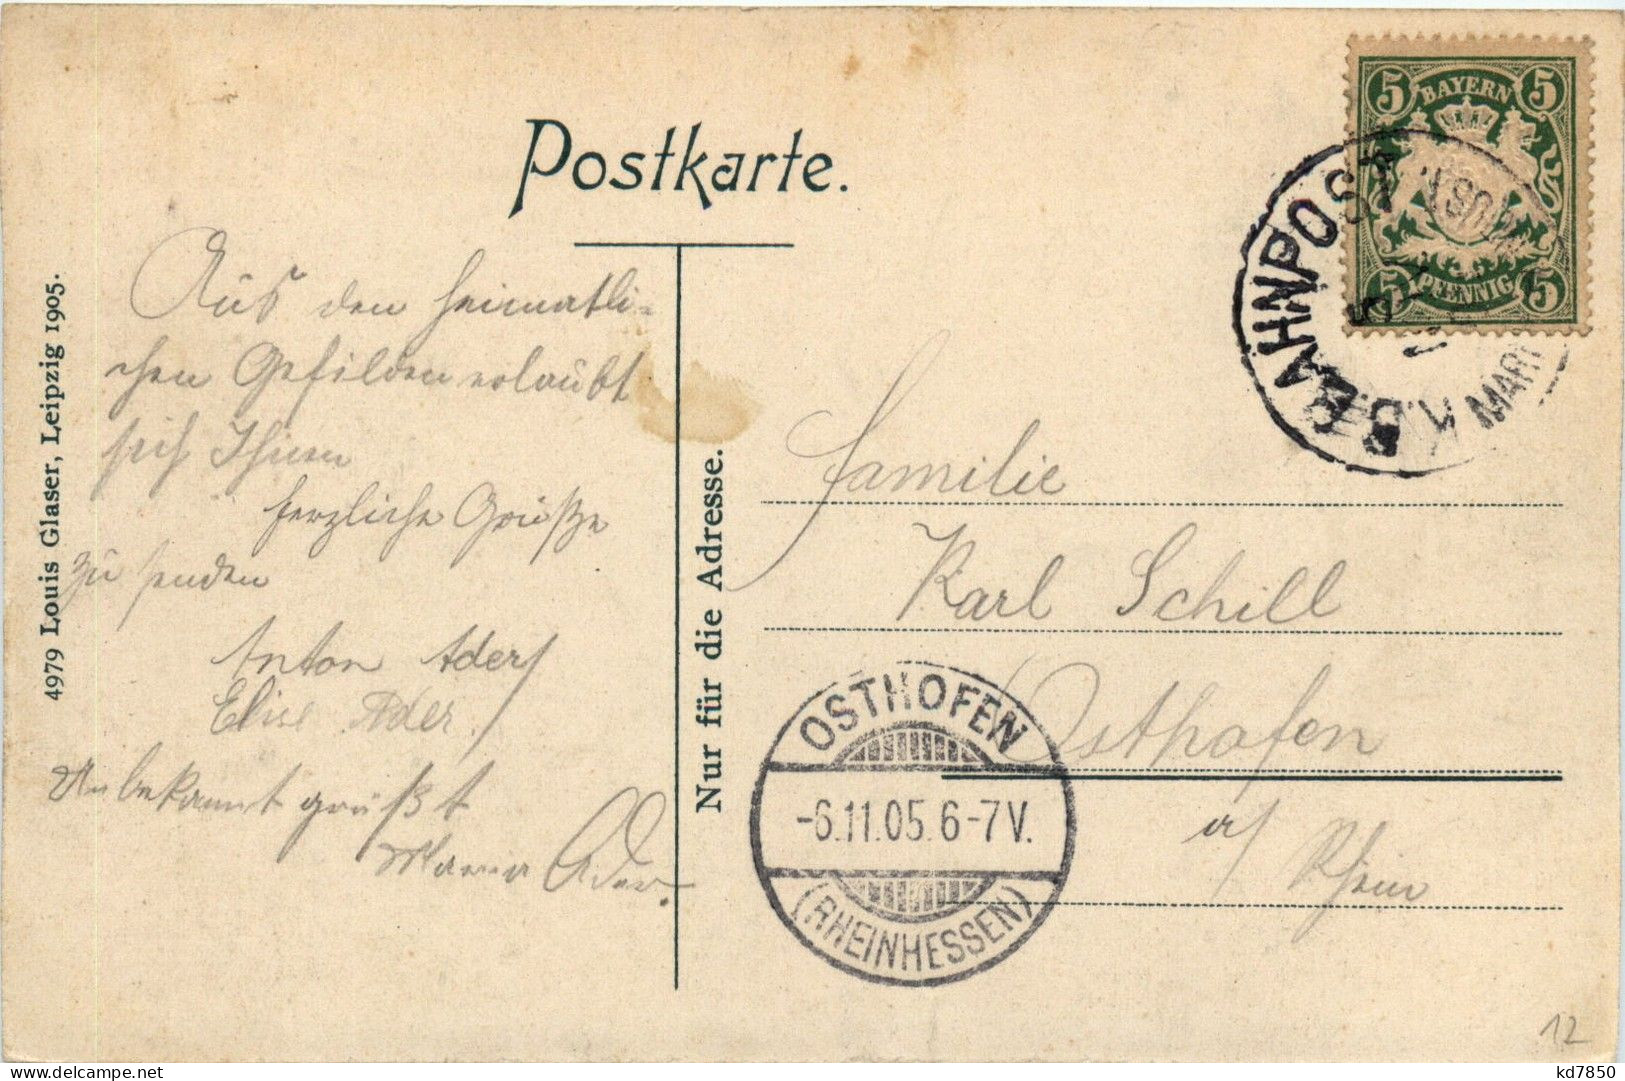 Postkarte.
4979 Louis Glaser, Leipzig 1905.
Nur für die Adresse.
Aus den heimatli-
chen Gefilden erlaubt
sich Ihnen
herzliche Grüße
zu senden
Anton Ader
Elise Ader.
Unbekannt grüßt
Maria Ader.
5 BAYERN 5
5 PFENNIG 5
BAHNPOST
Familie
Karl Schill
Osthofen
a/
Rhein
OSTHOFEN
-6.11.05.6-7V.
(RHEINHESSEN)
12
kd7850